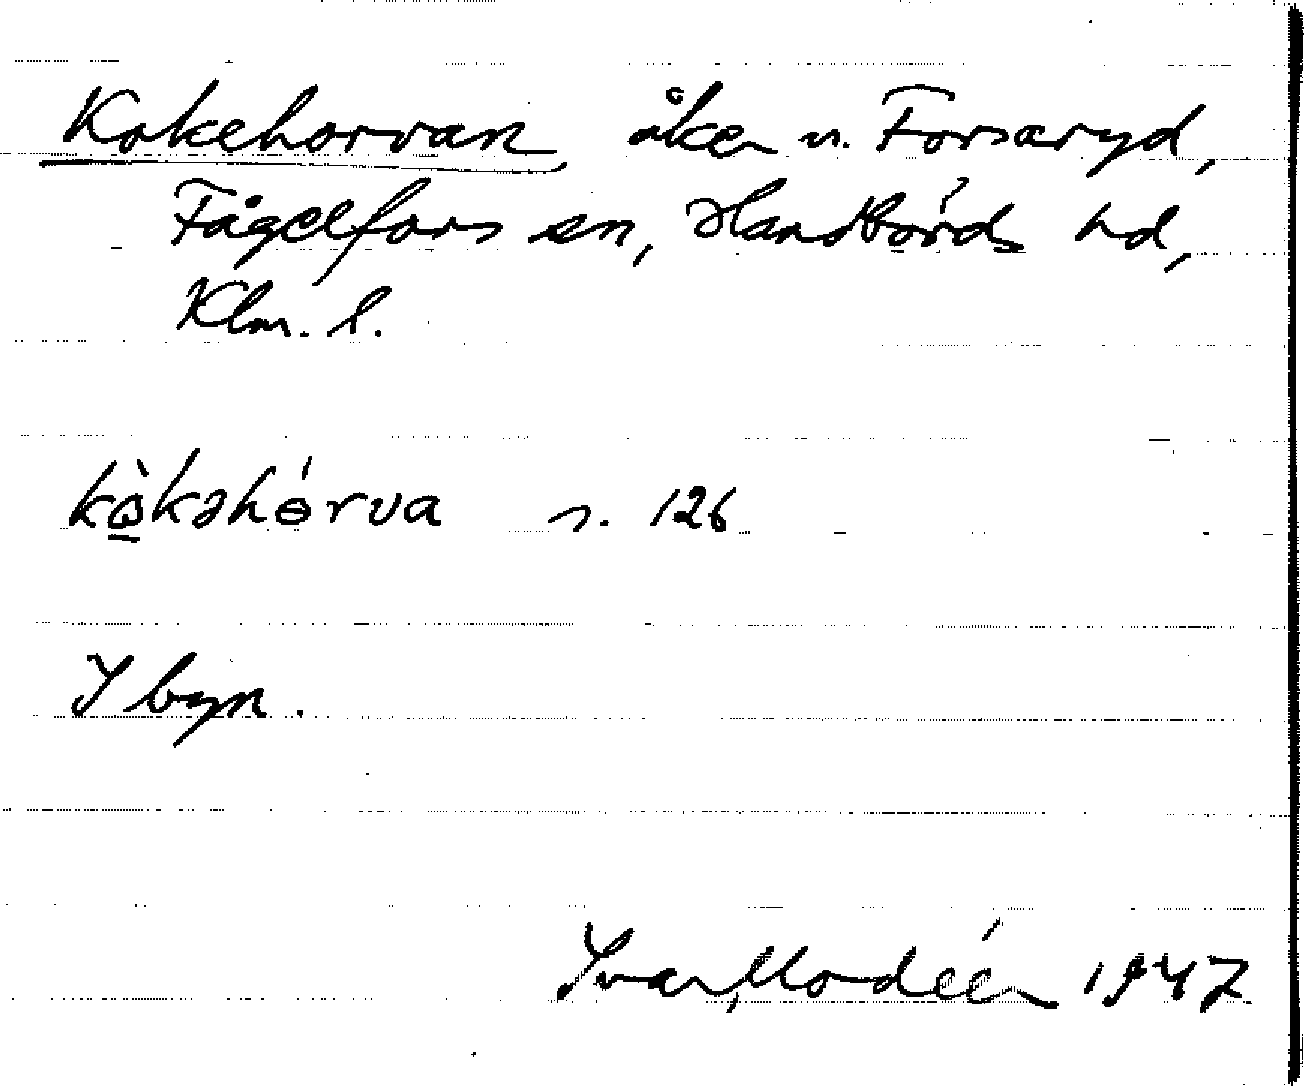 Kokehorvan, åker n. Forsaryd,
Fågelfors sn, Handbörds hd,
Klm. l.
kòkəhórva s. 126
I byn.
Ivar Modéer 1947